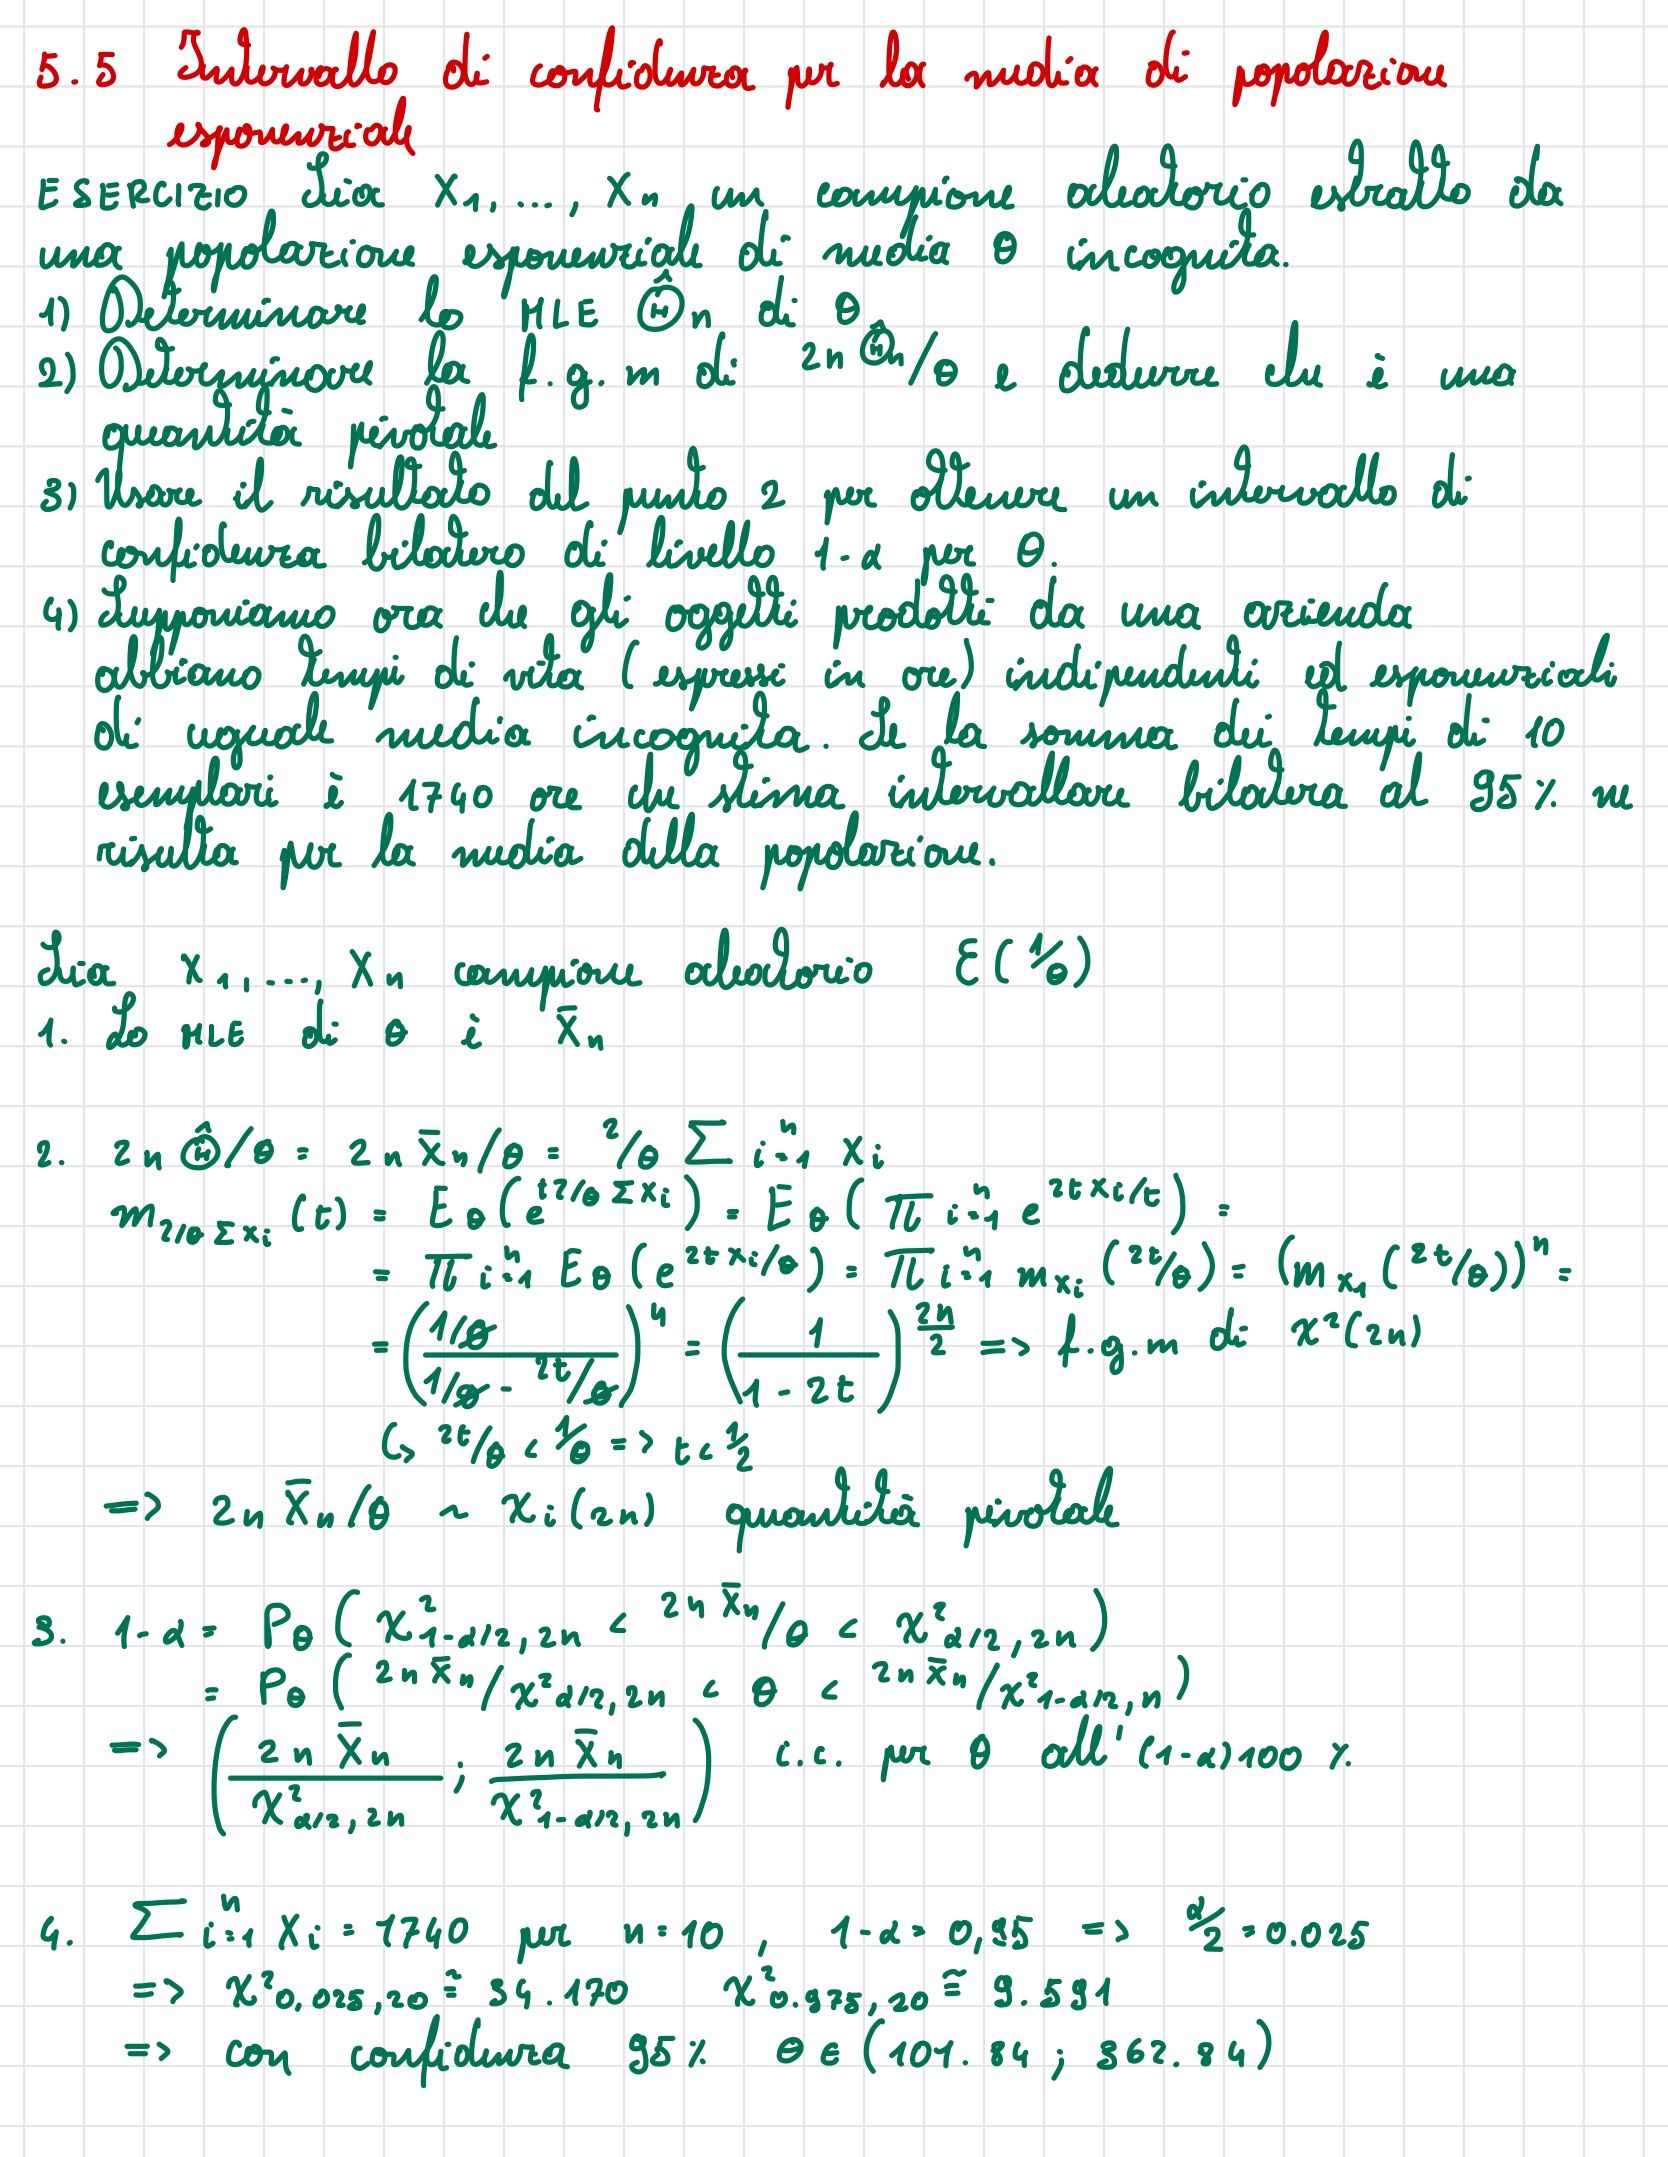 5.5 Intervallo di confidenza per la media di popolazione
esponenziale
ESERCIZIO Sia X₁, ..., Xₙ un campione aleatorio estratto da
una popolazione esponenziale di media θ incognita.
1) Determinare lo MLE Θ̂ₙ di θ
2) Determinare la f.g.m di 2nΘ̂ₙ/θ e dedurre che è una
quantità pivotale
3) Usare il risultato del punto 2 per ottenere un intervallo di
confidenza bilatero di livello 1-α per θ.
4) Supponiamo ora che gli oggetti prodotti da una azienda
abbiano tempi di vita (espressi in ore) indipendenti ed esponenziali
di uguale media incognita. Se la somma dei tempi di 10
esemplari è 1740 ore che stima intervallare bilatera al 95% ne
risulta per la media della popolazione.
Sia X₁, ..., Xₙ campione aleatorio Ɛ(1/θ)
1. Lo MLE di θ è X̄ₙ
2. 2nΘ̂/θ = 2nX̄ₙ/θ = 2/θ ∑ᵢ₌₁ⁿ Xᵢ
m_{2/θ∑Xᵢ}(t) = E_θ(e^{t2/θ ∑Xᵢ}) = E_θ(∏ᵢ₌₁ⁿ e^{2tXᵢ/t}) =
= ∏ᵢ₌₁ⁿ E_θ(e^{2tXᵢ/θ}) = ∏ᵢ₌₁ⁿ m_{Xᵢ}(2t/θ) = (m_{X₁}(2t/θ))ⁿ =
= ((1/θ)/(1/θ - 2t/θ))ⁿ = (1/(1-2t))^{2n/2} => f.g.m di χ²(2n)
↳ 2t/θ < 1/θ => t < 1/2
=> 2nX̄ₙ/θ ~ χᵢ(2n) quantità pivotale
3. 1-α = P_θ(χ²_{1-α/2, 2n} < 2nX̄ₙ/θ < χ²_{α/2, 2n})
= P_θ(2nX̄ₙ/χ²_{α/2, 2n} < θ < 2nX̄ₙ/χ²_{1-α/2, n})
=> (2nX̄ₙ/χ²_{α/2, 2n} ; 2nX̄ₙ/χ²_{1-α/2, 2n}) i.c. per θ all'(1-α)100 %
4. ∑ᵢ₌₁ⁿ Xᵢ = 1740 per n=10 , 1-α = 0,95 => α/2 = 0.025
=> χ²_{0,025, 20} ≅ 34.170 χ²_{0.975, 20} ≅ 9.591
=> con confidenza 95% θ ∈ (101.84 ; 362.84)